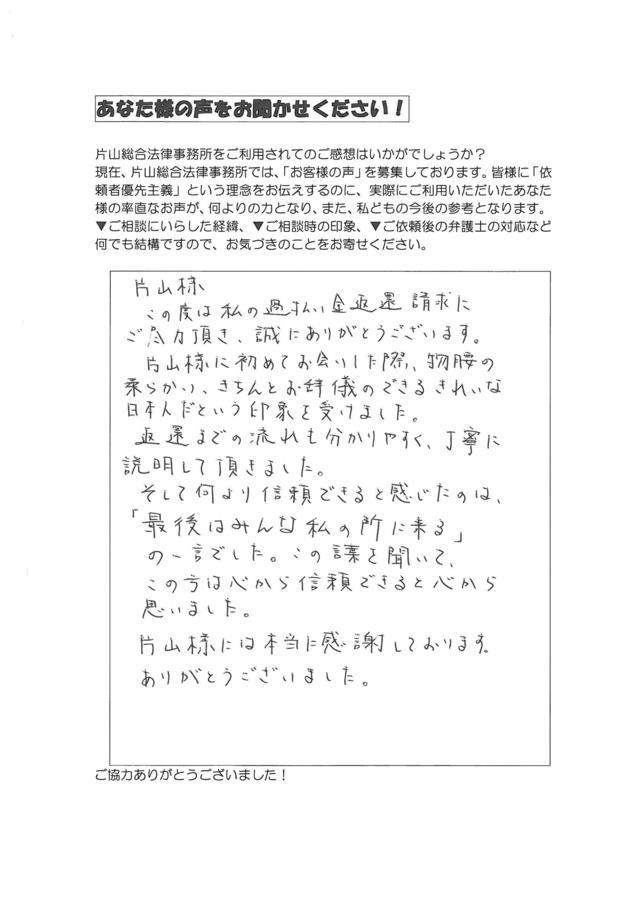 あなた様の声をお聞かせください！
片山総合法律事務所をご利用されてのご感想はいかがでしょうか？
現在、片山総合法律事務所では、「お客様の声」を募集しております。皆様に「依
頼者優先主義」という理念をお伝えするのに、実際にご利用いただいたあなた
様の率直なお声が、何よりの力となり、また、私どもの今後の参考となります。
▼ご相談にいらした経緯、▼ご相談時の印象、▼ご依頼後の弁護士の対応など
何でも結構ですので、お気づきのことをお寄せください。
片山様
この度は私の過払い金返還請求に
ご尽力頂き、誠にありがとうございます。
片山様に初めてお会いした際、物腰の
柔らかい、きちんとお辞儀のできるきれいな
日本人だという印象を受けました。
返還までの流れも分かりやすく、丁寧に
説明して頂きました。
そして何より信頼できると感じたのは、
「最後はみんな私の所に来る」
の一言でした。この言葉を聞いて、
この方は心から信頼できると心から
思いました。
片山様には本当に感謝しております。
ありがとうございました。
ご協力ありがとうございました！